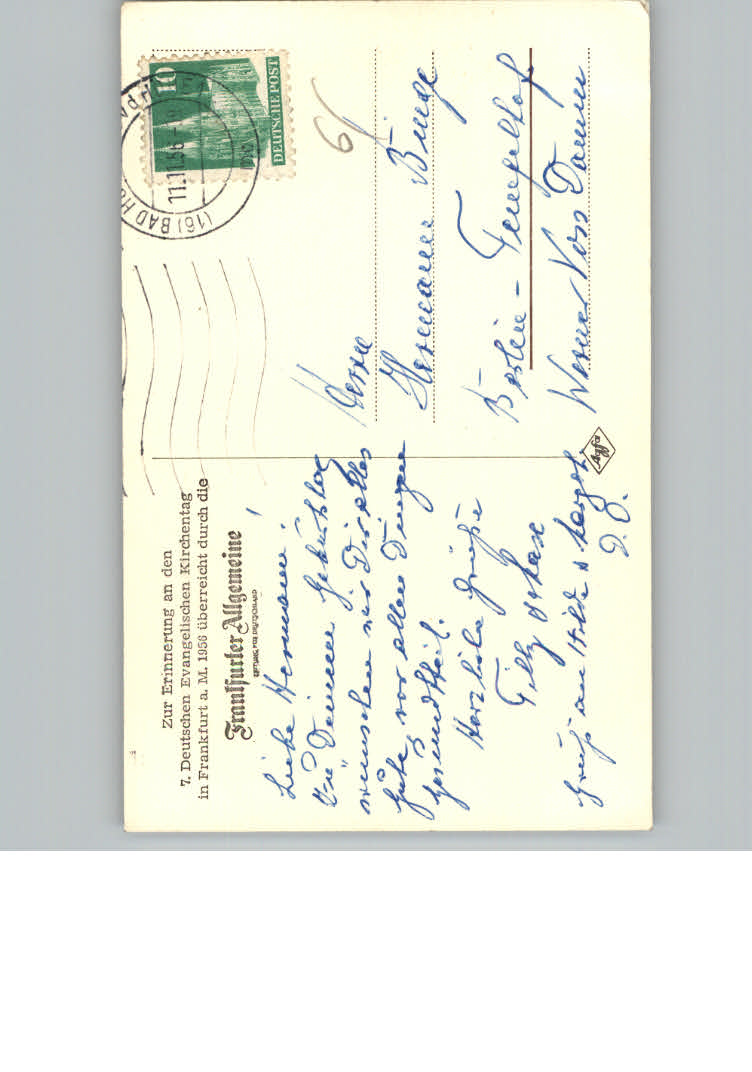 Zur Erinnerung an den
7. Deutschen Evangelischen Kirchentag
in Frankfurt a. M. 1956 überreicht durch die
Frankfurter Allgemeine
ZEITUNG FÜR DEUTSCHLAND
Lieber Hermann!
Zu Deinem Geburtstag
wünschen wir Dir alles
Gute vor allen Dingen
Gesundheit.
Herzliche Grüße
Gruß an Hilde
D. O.
Agfa
10
DEUTSCHE POST
(16) BAD HO
11.11.56
6
Herrn
Hermann Binge
Berlin-Tempelhof
Werner Voss Damm